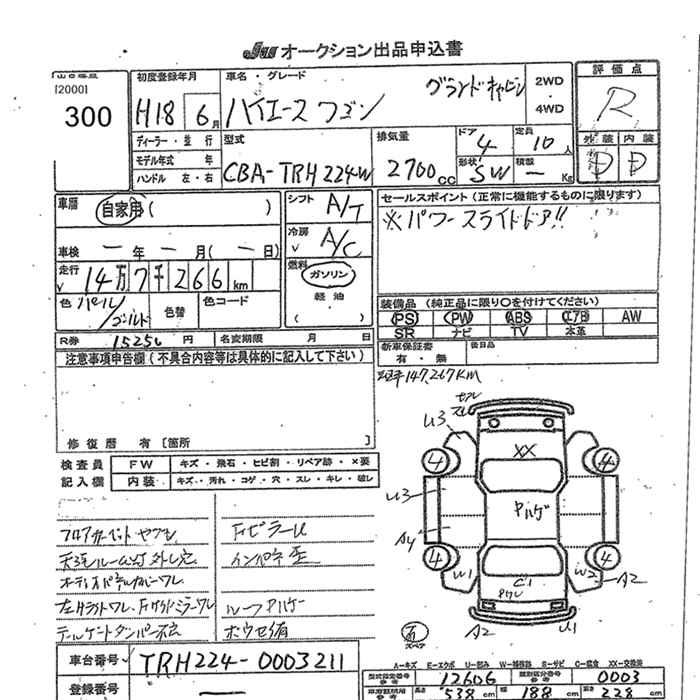 JU オークション出品申込書
[2000]
300
初度登録年月
H18 6月
ディーラー・並行
モデル年式 年
ハンドル 左・右
車名・グレード
ハイエース ワゴン グランドキャビン
2WD
・
4WD
型式
CBA-TRH224W
排気量
2700cc
ドア
4
定員
10人
形状
SW
積載
― Kg
評価点
R
外装 内装
D D
車歴
自家用 ( )
車検 ― 年 ― 月 (― 日)
走行 14万7千266km
色 パール/ゴールド
色替
色コード
シフト
A/T
冷房
A/C
燃料
ガソリン
軽油
( )
セールスポイント (正常に機能するものに限ります)
※パワースライドドア!!
装備品 (純正品に限り〇を付けてください)
PS PW ABS エアB AW
SR ナビ TV 本革
新車保証書
有・無
後日品
R券 15250円 名変期限 月 日
注意事項申告欄 (不具合内容等は具体的に記入して下さい)
修復歴 有 [箇所 ]
距離147,267KM
検査員
記入欄
FW キズ・飛石・ヒビ割・リペア跡・×要
内装 キズ・汚れ・コゲ・穴・スレ・キレ・破レ
フロアカーペットヤブレ
FピラーU
天張ルーム灯外し穴
インパネ歪
オーディオパネルカバーワレ
左Hライトワレ、Fサイドミラーワレ
ルーフPハゲ
テールゲートダンパー不良
ホウセ有
U3
XX
4
4
U3
Pハゲ
A4
4
4
W1
W2
A2
C1
Pワレ
A2
U1
スペア
A-キズ E-エクボ U-凹み W-補修跡 S-サビ C-腐食 XX-交換済
車台番号 TRH224-0003211
登録番号 ―
型式指定番号
参考
12606
類別区分番号
参考
0003
長さ 538cm 幅 188cm 高さ 228cm